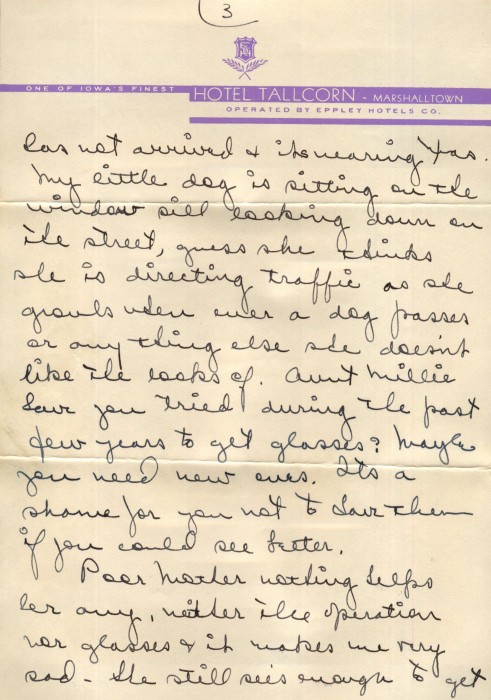 3
ONE OF IOWA'S FINEST
HOTEL TALLCORN - MARSHALLTOWN
OPERATED BY EPPLEY HOTELS CO.
has not arrived & its nearing Xas.
My little dog is sitting on the
window sill looking down on
the street, guess she thinks
she is directing traffic as she
growls when ever a dog passes
or any thing else she doesn't
like the looks of. Aunt Millie
have you tried during the past
few years to get glasses? Maybe
you need new ones. Its a
shame for you not to have them
if you could see better.
Poor Mother nothing helps
her any, neither the operation
nor glasses & it makes me very
sad - She still sees enough to get